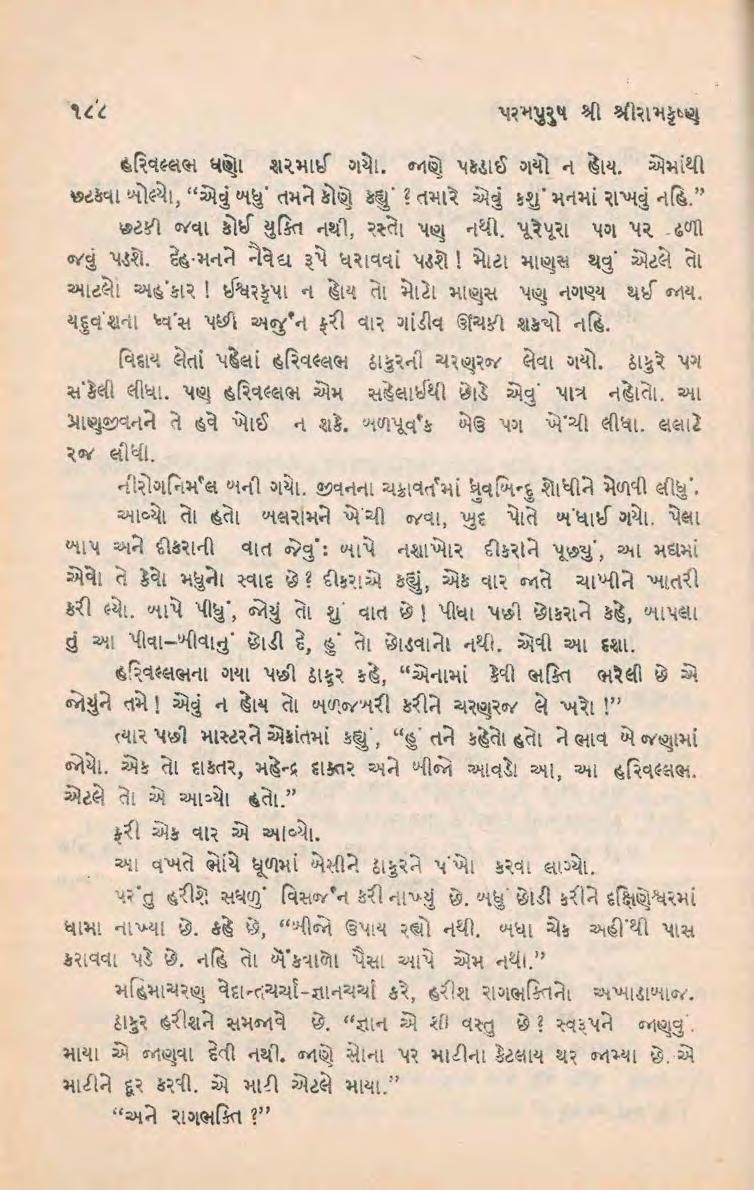 ૧૮૮ પરમપુરુષ શ્રી શ્રીરામકૃષ્ણ
હરિવલ્લભ ઘણો શરમાઈ ગયો. જાણે પકડાઈ ગયો ન હોય. એમાંથી
છટકવા બોલ્યો, “એવું બધું તમને કોણે કહ્યું ? તમારે એવું કશું મનમાં રાખવું નહિ.”
છટકી જવા કોઈ યુક્તિ નથી, રસ્તો પણ નથી. પૂરેપૂરા પગ પર ઢળી
જવું પડશે. દેહ-મનને નૈવેદ્ય રૂપે ધરાવવાં પડશે ! મોટા માણસ થવું એટલે તો
આટલો અહંકાર ! ઈશ્વરકૃપા ન હોય તો મોટો માણસ પણ નગણ્ય થઈ જાય.
યદુવંશના ધ્વંસ પછી અર્જુન ફરી વાર ગાંડીવ ઊંચકી શકયો નહિ.
વિદાય લેતાં પહેલાં હરિવલ્લભ ઠાકુરની ચરણરજ લેવા ગયો. ઠાકુરે પગ
સંકેલી લીધા. પણ હરિવલ્લભ એમ સહેલાઈથી છોડે એવું પાત્ર નહોતો. આ
પ્રાણજીવનને તે હવે ખોઈ ન શકે. બળપૂર્વક બેઉ પગ ખેંચી લીધા. લલાટે
રજ લીધી.
નીરોગનિર્મલ બની ગયો. જીવનના ચક્રાવર્તમાં ધ્રુવબિન્દુ શોધીને મેળવી લીધું.
આવ્યો તો હતો બલરામને ખેંચી જવા, ખુદ પોતે બંધાઈ ગયો. પેલા
બાપ અને દીકરાની વાત જેવું: બાપે નશાખોર દીકરાને પૂછ્યું, આ મદ્યમાં
એવો તે કેવો મધુનો સ્વાદ છે ? દીકરાએ કહ્યું, એક વાર જાતે ચાખીને ખાતરી
કરી લ્યો. બાપે પીધું, જોયું તો શું વાત છે ! પીધા પછી છોકરાને કહે, બાપલા
તું આ પીવા–બીવાનું છોડી દે, હું તો છોડવાનો નથી. એવી આ દશા.
હરિવલ્લભના ગયા પછી ઠાકુર કહે, “એનામાં કેવી ભક્તિ ભરેલી છે એ
જોયુંને તમે ! એવું ન હોય તો બળજબરી કરીને ચરણરજ લે ખરો !”
ત્યાર પછી માસ્ટરને એકાંતમાં કહ્યું, “હું તને કહેતો હતો ને ભાવ બે જણામાં
જોયો. એક તો દાકતર, મહેન્દ્ર દાક્તર અને બીજો આવડો આ, આ હરિવલ્લભ.
એટલે તો એ આવ્યો હતો.”
ફરી એક વાર એ આવ્યો.
આ વખતે ભોંયે ધૂળમાં બેસીને ઠાકુરને પંખો કરવા લાગ્યો.
પરંતુ હરીશે સઘળું વિસર્જન કરી નાખ્યું છે. બધું છોડી કરીને દક્ષિણેશ્વરમાં
ધામા નાખ્યા છે. કહે છે, “બીજો ઉપાય રહ્યો નથી. બધા ચેક અહીંથી પાસ
કરાવવા પડે છે. નહિ તો બૅંકવાળો પૈસા આપે એમ નથી.”
મહિમાચરણ વેદાન્તચર્ચા-જ્ઞાનચર્ચા કરે, હરીશ રાગભક્તિનો અખાડાબાજ.
ઠાકુર હરીશને સમજાવે છે. “જ્ઞાન એ શી વસ્તુ છે ? સ્વરૂપને જાણવું.
માયા એ જાણવા દેતી નથી. જાણે સોના પર માટીના કેટલાય થર જામ્યા છે. એ
માટીને દૂર કરવી. એ માટી એટલે માયા.”
“અને રાગભક્તિ ?”